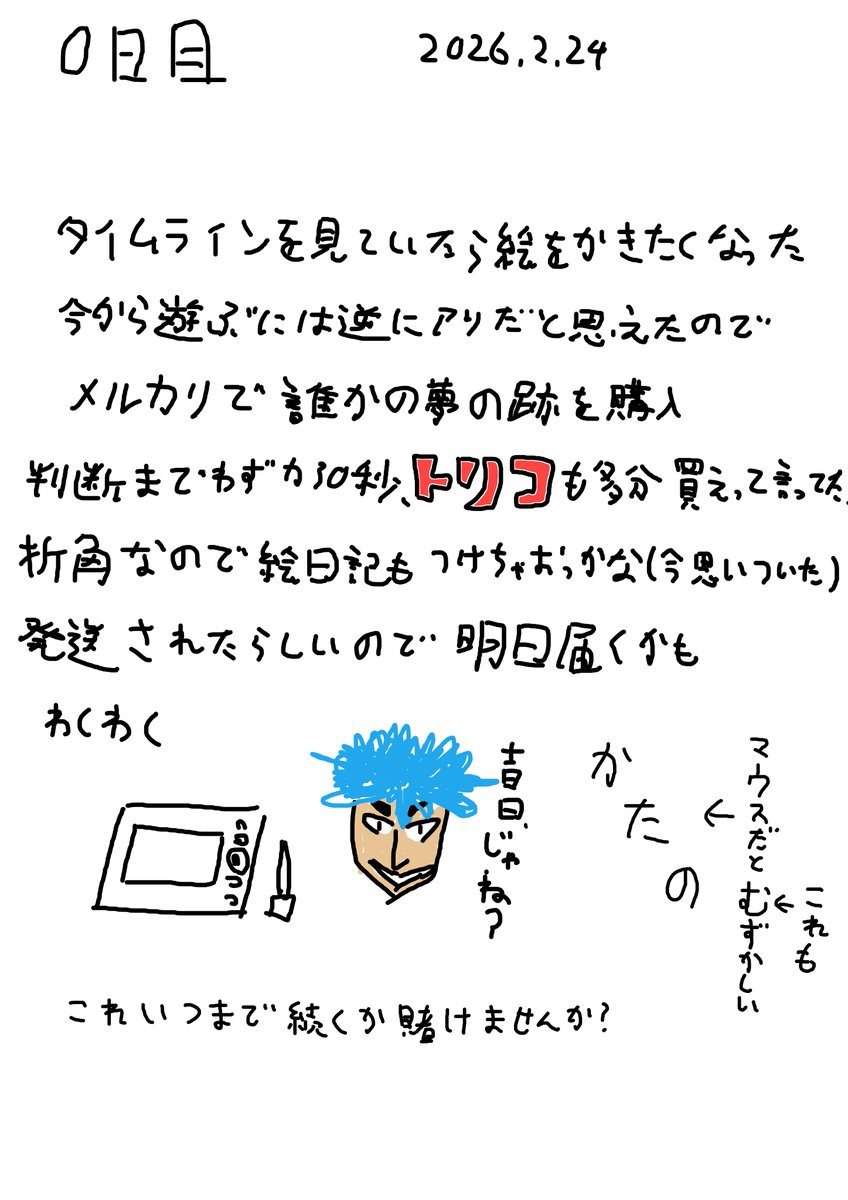 0日目
2026.2.24
タイムラインを見ていたら絵をかきたくなった
今から遊ぶには逆にアリだと思えたので
メルカリで誰かの夢の跡を購入
判断までわずか30秒、トリコも多分買えって言ってた
折角なので絵日記もつけちゃおっかな(今思いついた)
発送されたらしいので明日届くかも
わくわく
吉日じゃね?
かたの
←マウスだとむずかしい
←これも
これいつまで続くか賭けませんか?